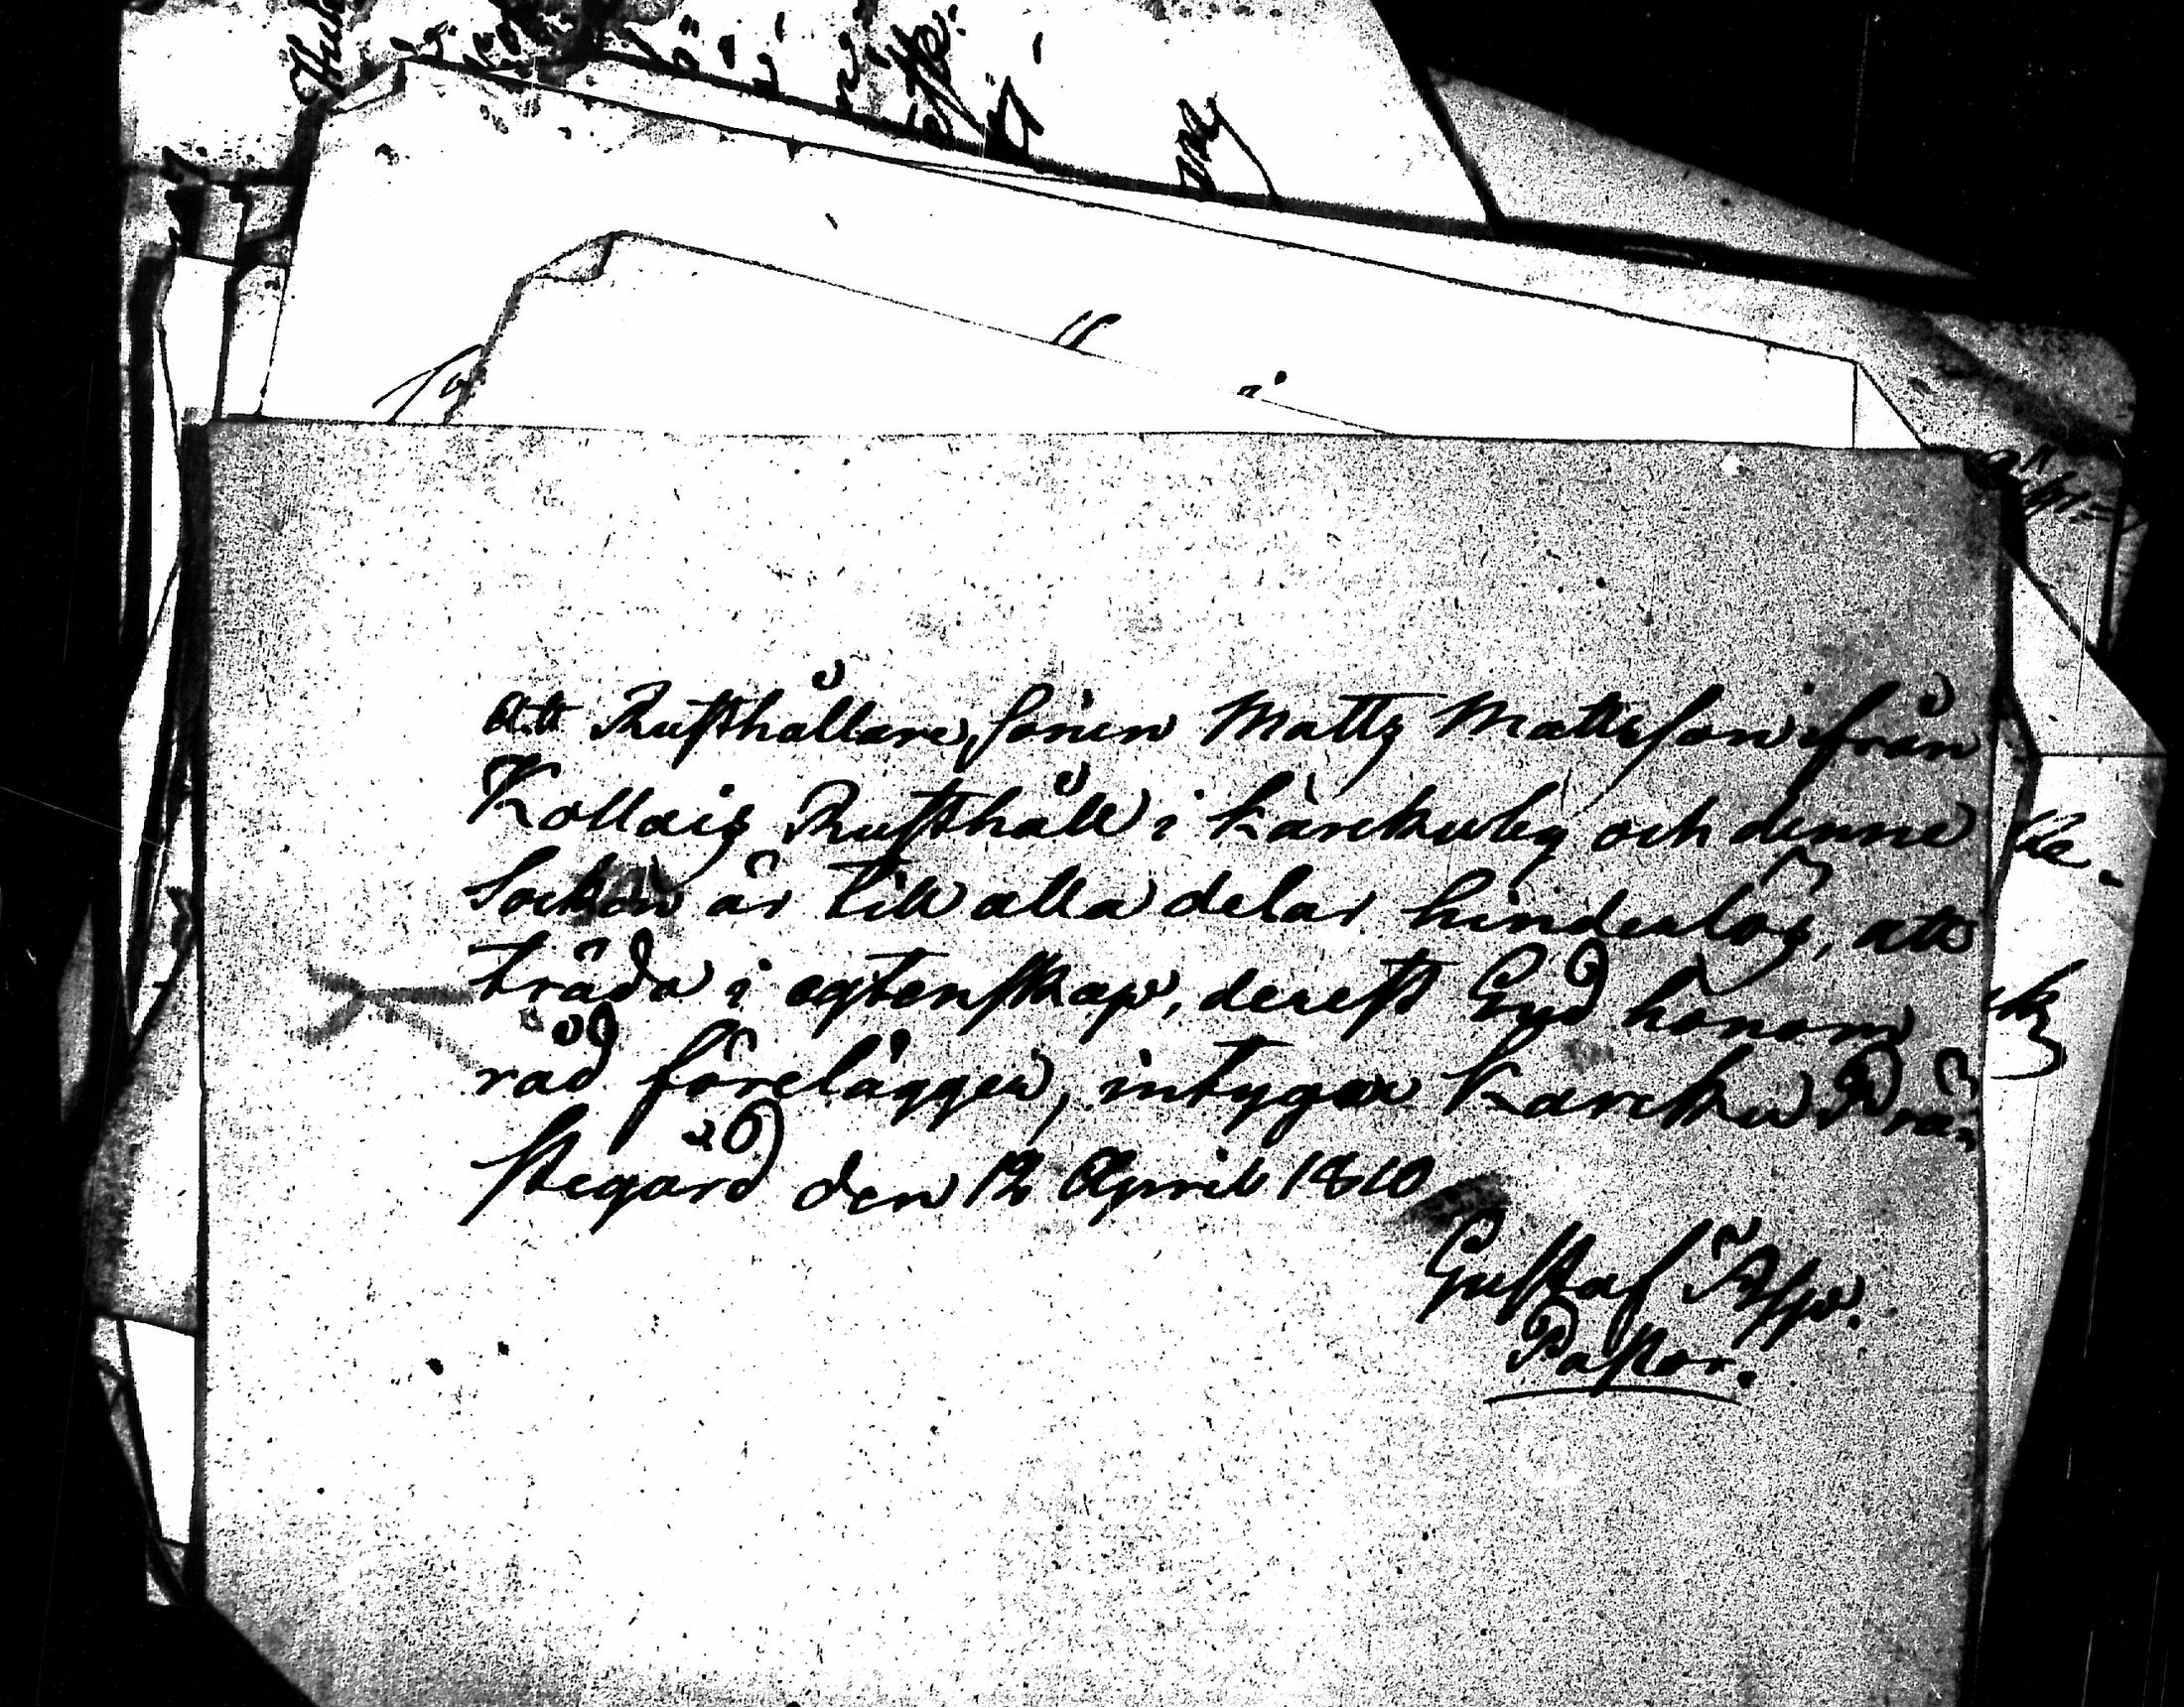 Att Rusthållare sonen Matts Mattsson ifrån
Kollais Rusthåll i Karckuby och denne
Sockn är till alla delar hinderlös, att
träda i egtenskap, derest Gud honom
råd förelägger, intygar Karcku Prä-
stegård den 12 April 1810.
Gustaf Asp.
Pastor.